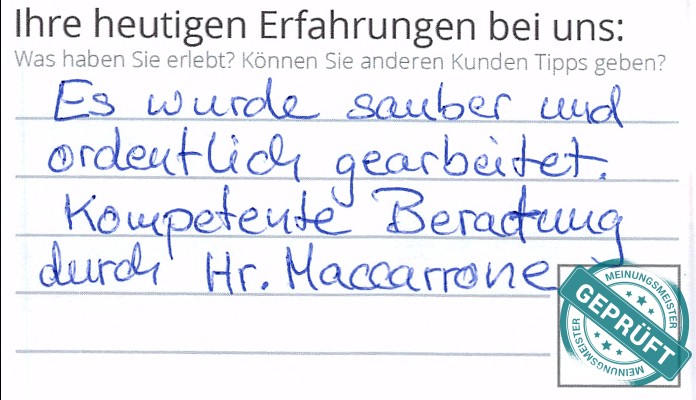 Ihre heutigen Erfahrungen bei uns:
Was haben Sie erlebt? Können Sie anderen Kunden Tipps geben?
Es wurde sauber und
ordentlich gearbeitet.
Kompetente Beratung
durch Hr. Maccarrone
MEINUNGSMEISTER
GEPRÜFT
MEINUNGSMEISTER